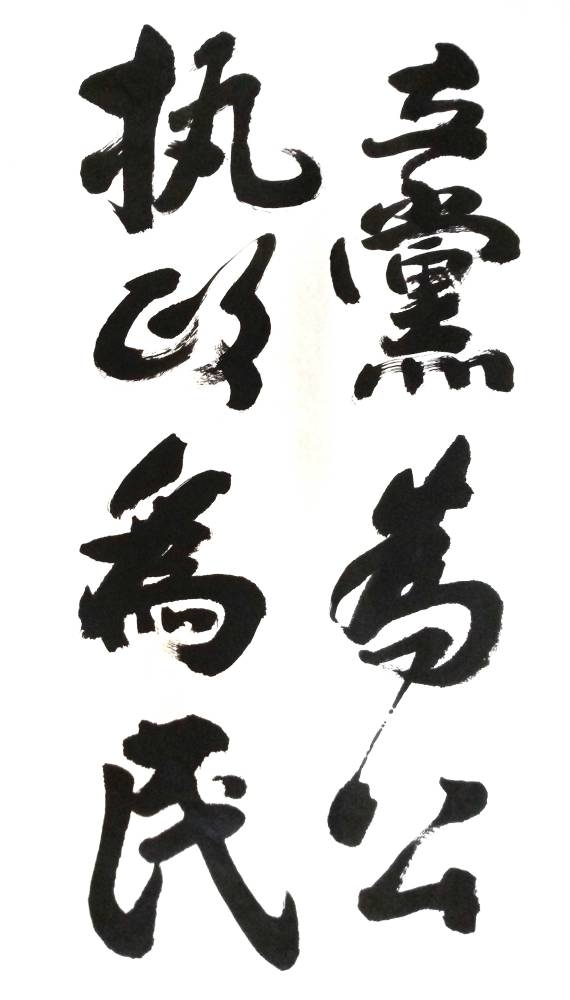 立黨為公
执政為民